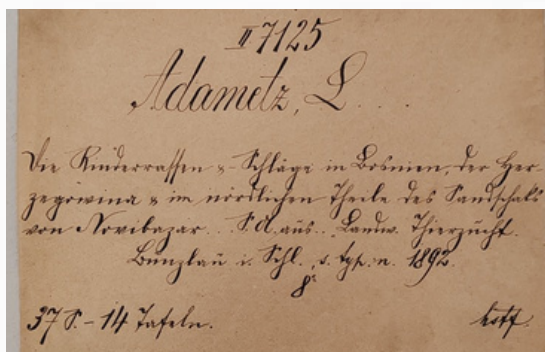 II 7125
Adametz, L...
Die Rinderrassen u. Schläge in Bosnien, der Her-
zegowina u. im nördlichen Theile des Sandschaks
von Novibazar... S.A. aus... Landw. Thierzucht.
Bunzlau i. Schl., s. typ. n. 1892.
8°
37 S. - 14 Tafeln.